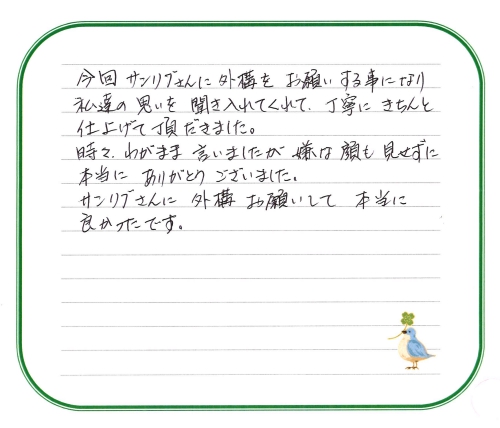 今回 サンリブさんに 外構を お願いする事になり
私達の 思いを 聞き入れてくれて、丁寧に きちんと
仕上げて頂だきました。
時々、わがまま 言いましたが 嫌な 顔も 見せずに
本当に ありがとうございました。
サンリブさんに 外構 お願いして 本当に
良かったです。